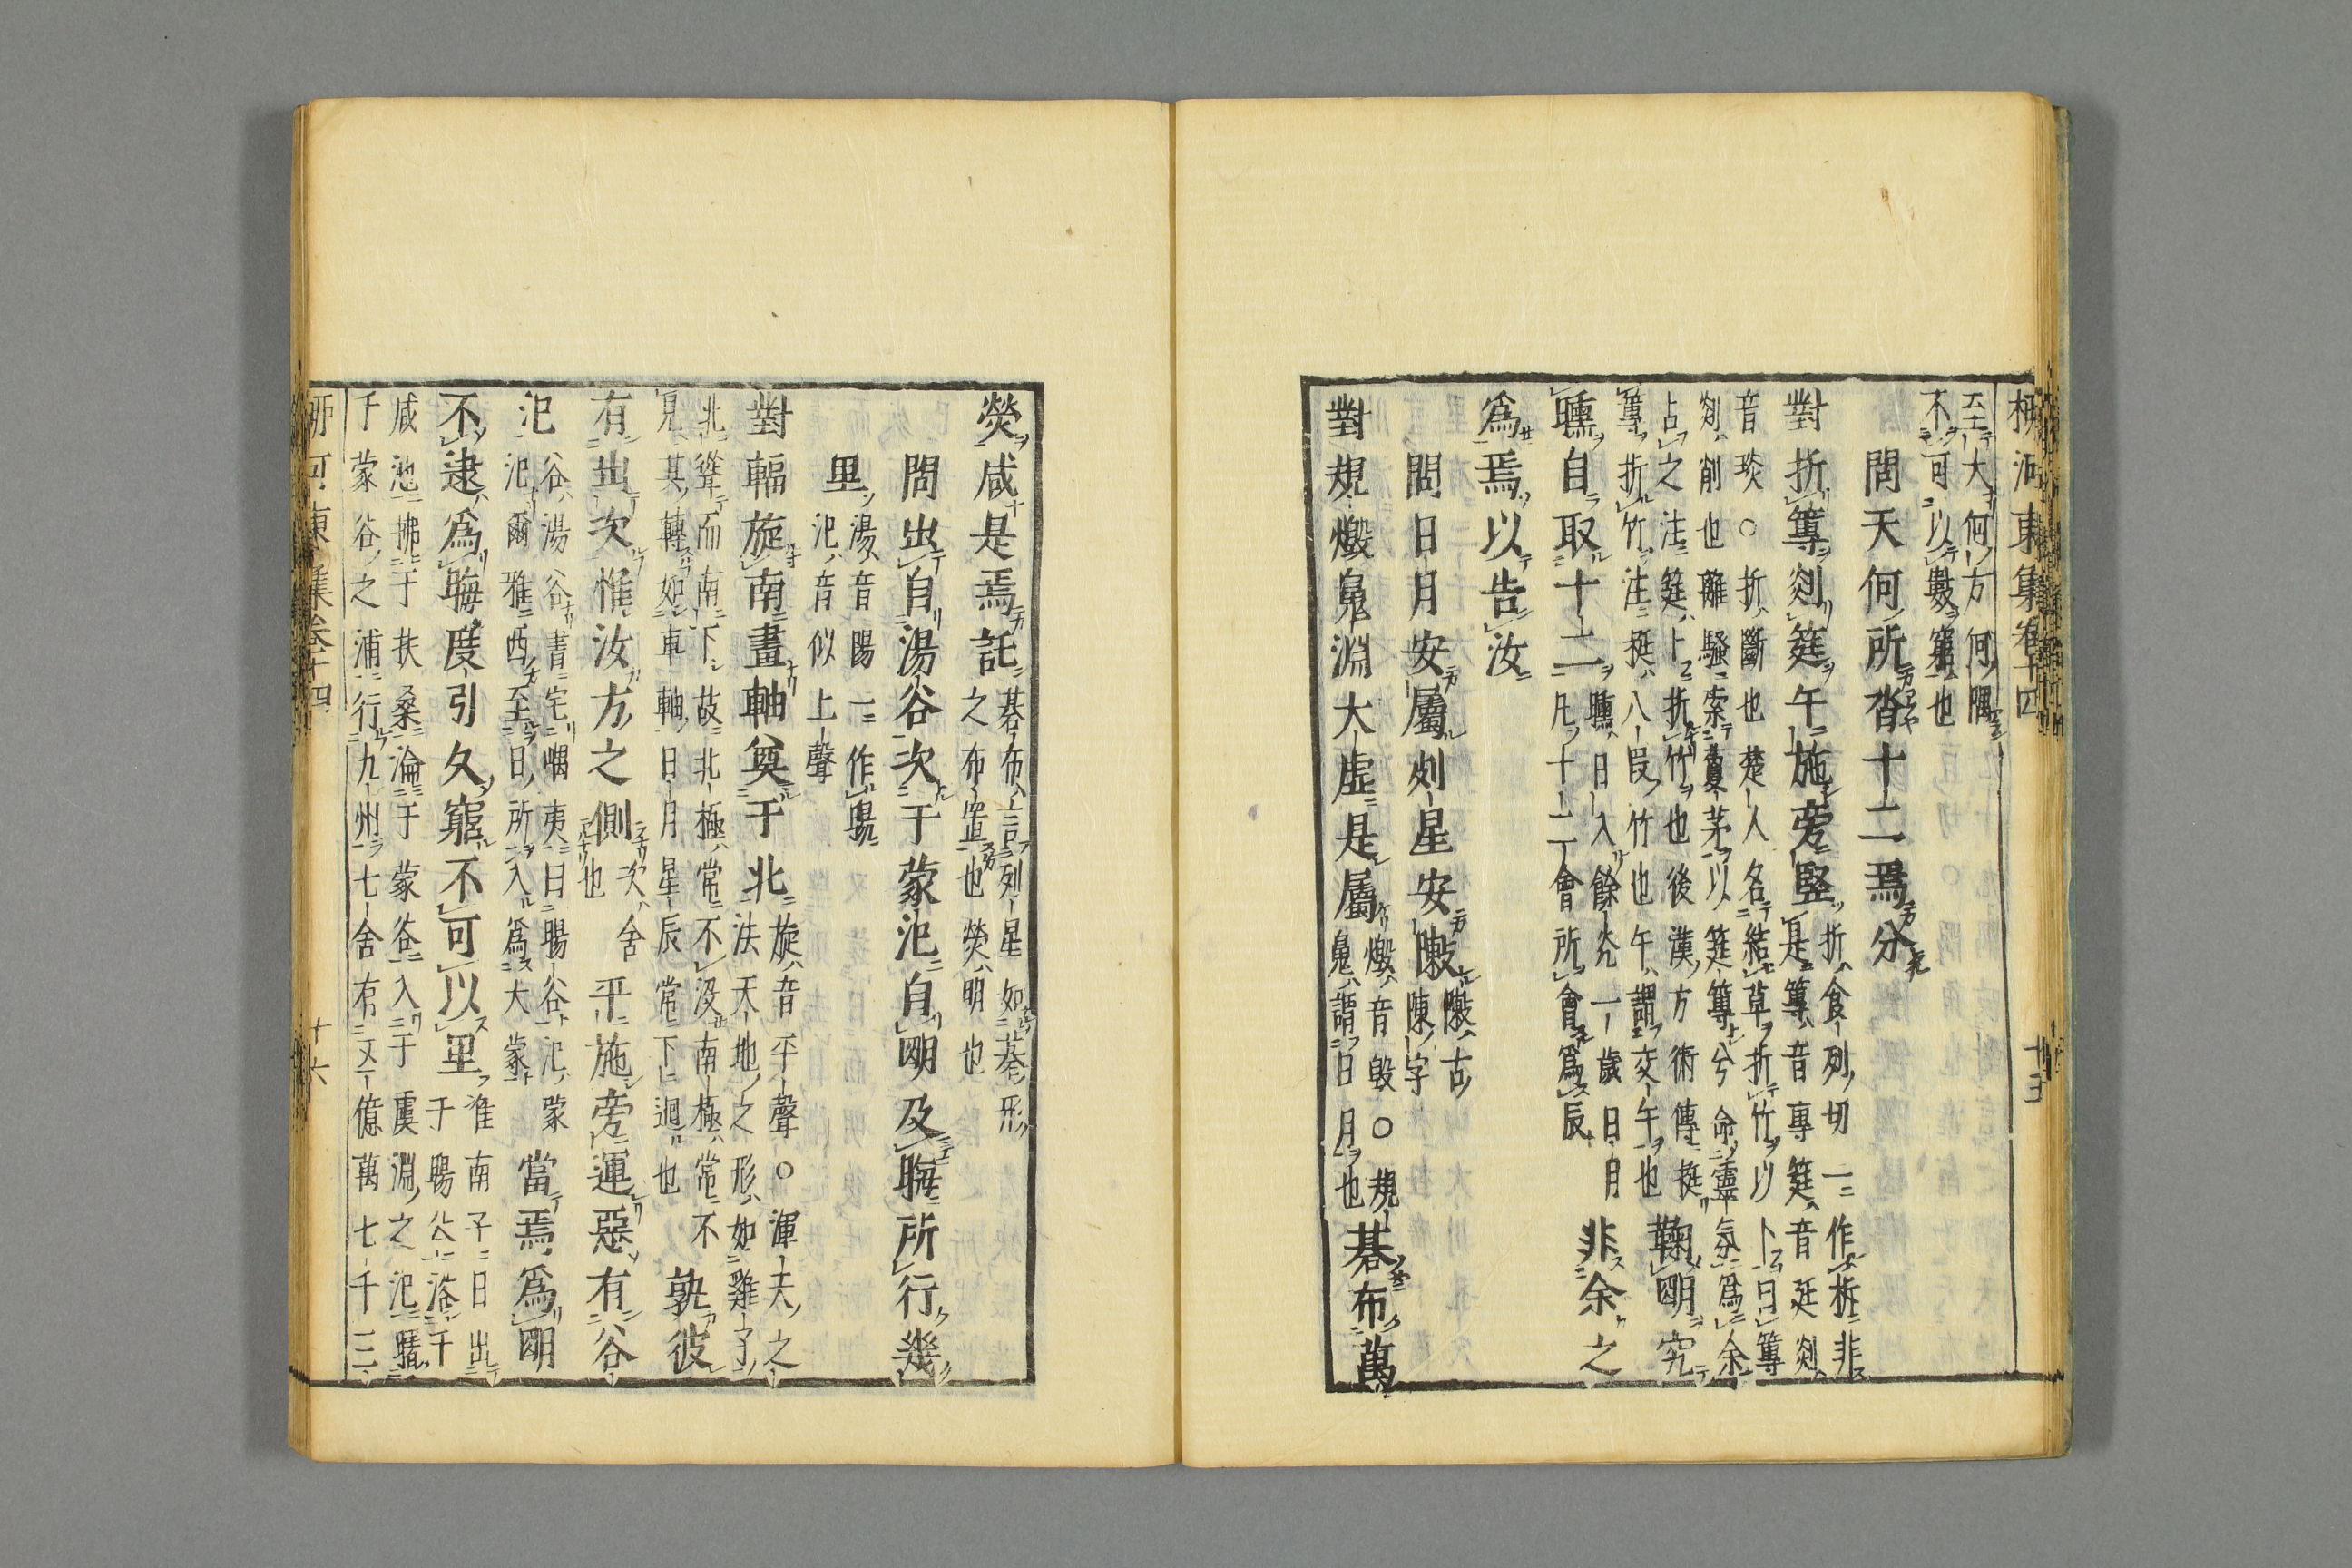 柳河東集卷十四 十五
至大何方何隅
不可以數窮也
問天何所沓十二焉分
對折篿剡筳午施旁竪折食列切一作析非
是篿音專筳音延剡
音琰○折斷也楚人名結草折竹以卜曰篿
剡削也離騷索藑茅以筳篿兮命靈氛爲余
占之注筳卜折竹也後漢方術傳挺
篿折竹注挺八段竹也午謂交午也鞠明究
曛自取十二曛日入餘光一歲日月
凡十二會所會爲辰非余之
爲焉以告汝
問日月安屬列星安敶敶古
陳字
對規燬鬼淵大虛是屬燬音毀○規
鬼謂日月也棊布萬
熒咸是焉託棊布言列星如棊形
之布置也熒明也
問出自湯谷次于蒙汜自明及晦所行幾
里湯音陽一作暘
汜音似上聲
對輻旋南畫軸奠于北旋音平聲○渾夫之
法天地之形如雞子
北聳而南下故北極常不没南極常不
見其轉如車軸日月星辰常下迴也孰彼
有出次惟汝方之側次舍
也平施旁運惡有谷
汜谷湯谷書宅嵎夷曰暘谷汜蒙
汜爾雅西至日所入爲大蒙當焉爲明
不逮爲晦度引久窮不可以里淮南子日出
于暘谷浴于
咸池拂于扶桑淪于蒙谷入于虞淵之汜曙
于蒙谷之浦行九州七舍有五億萬七千三
柳河東集卷十四 十六